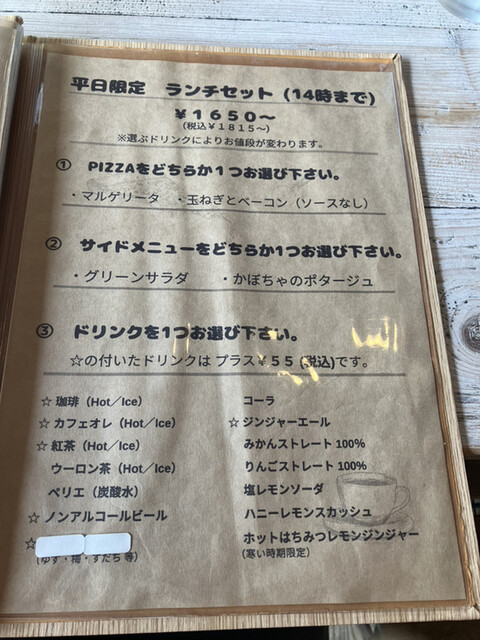 平日限定　ランチセット（14時まで）
￥１６５０～
（税込￥１８１５～）
※選ぶドリンクによりお値段が変わります。
① PIZZAをどちらか１つお選び下さい。
・マルゲリータ　・玉ねぎとベーコン（ソースなし）
② サイドメニューをどちらか1つお選び下さい。
・グリーンサラダ　・かぼちゃのポタージュ
③ ドリンクを1つお選び下さい。
☆の付いたドリンクは プラス￥５５（税込）です。
☆ 珈琲（Hot／Ice）
☆ カフェオレ（Hot／Ice）
☆ 紅茶（Hot／Ice）
ウーロン茶（Hot／Ice）
ペリエ（炭酸水）
☆ ノンアルコールビール
☆
（ゆず・梅・すだち 等）
コーラ
☆ ジンジャーエール
みかんストレート 100%
りんごストレート 100%
塩レモンソーダ
ハニーレモンスカッシュ
ホットはちみつレモンジンジャー
（寒い時期限定）